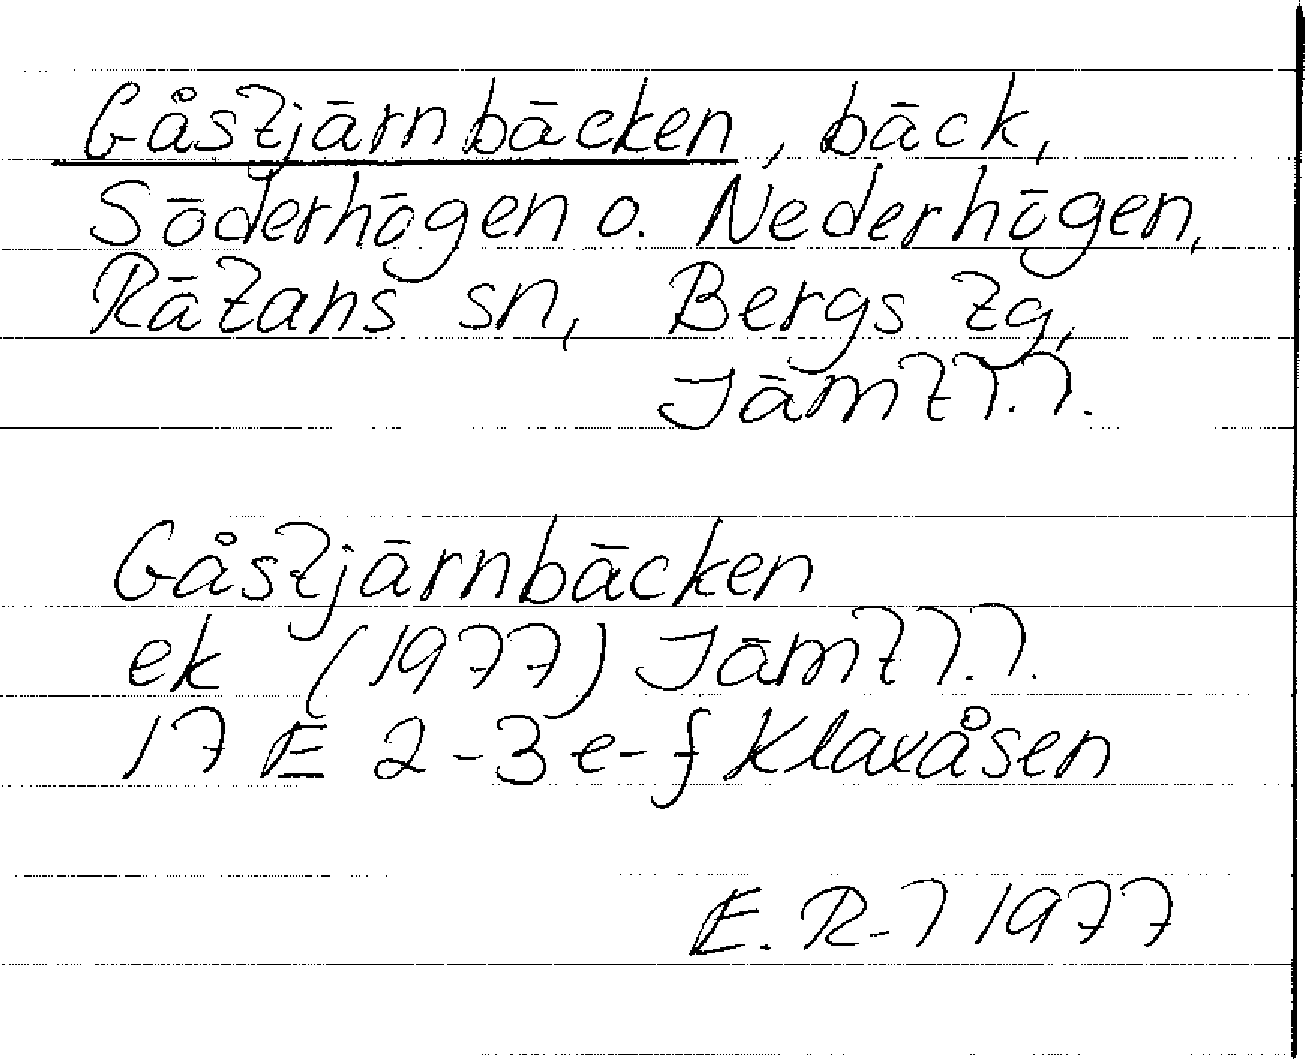 Gåstjärnbäcken, bäck,
Söderhögen o. Nederhögen,
Rätans sn, Bergs tg,
Jämtl.l.
Gåstjärnbäcken
ek (1977) Jämtl.l.
17 E 2-3 e-f Klaxåsen
E. R-l 1977